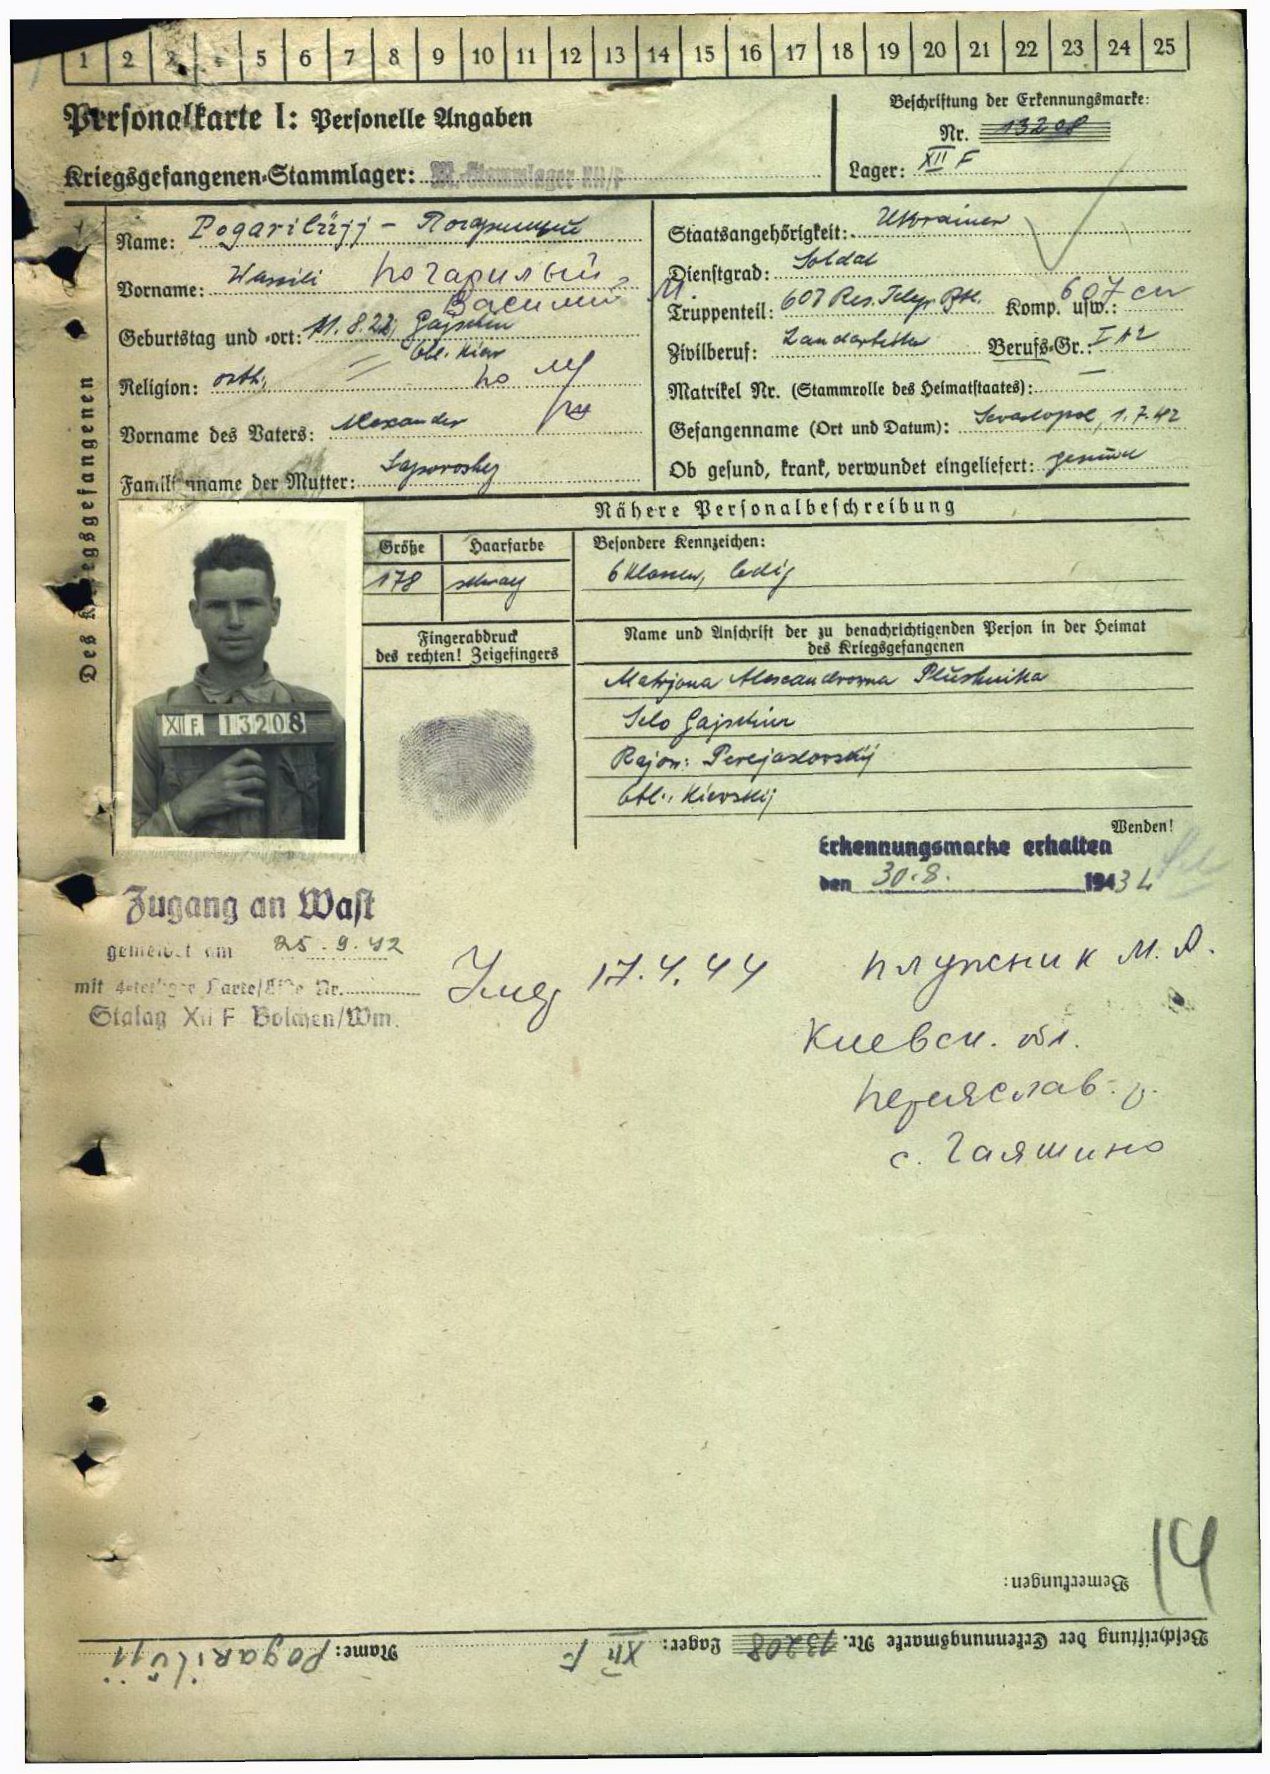 1 2 3 4 5 6 7 8 9 10 11 12 13 14 15 16 17 18 19 20 21 22 23 24 25
Personalkarte I: Personelle Angaben
Kriegsgefangenen-Stammlager: M.-Stammlager XII/F
Beschriftung der Erkennungsmarke:
Nr. 13208
Lager: XII F
Des Kriegsgefangenen
Name: Pogarilüjj -
Vorname: Wassili Погарилый
Василий
Geburtstag und -ort: 11.8.22, Gajschin
Obl. Kiew
Religion: orth.
Vorname des Vaters: Alexander
Familienname der Mutter: Saporoshez
Staatsangehörigkeit: Ukrainer
Dienstgrad: Soldat
Truppenteil: 607 Res. Komp. usw.: 607
Zivilberuf: Landarbeiter Berufs-Gr.: I A2
Matrikel Nr. (Stammrolle des Heimatstaates): —
Gefangennahme (Ort und Datum): Sevastopol, 1.7.42
Ob gesund, krank, verwundet eingeliefert: gesund
Nähere Personalbeschreibung
Größe Haarfarbe Besondere Kennzeichen:
178 schwarz 6 Klassen, ledig
XII F. 13208
Fingerabdruck
des rechten! Zeigefingers
Name und Anschrift der zu benachrichtigenden Person in der Heimat
des Kriegsgefangenen
Matrjona Alexandrowna Plushnika
Selo Gajschin
Rajon: Perejaslovskij
Obl.: Kievskij
Wenden!
Erkennungsmarke erhalten
den 30.8. 1943
Zugang an Wast
gemeldet am 25.9.42
mit Karte/Liste Nr.
Stalag XII F Bolchen/Wm.
17.4.44
Плужник М. А.
Киевск. обл.
Переяслав. р.
с. Гаяшино
14
Bemerkungen:
Beschriftung der Erkennungsmarke Nr. 13208 Lager: XII F Name: Pogarilüjj